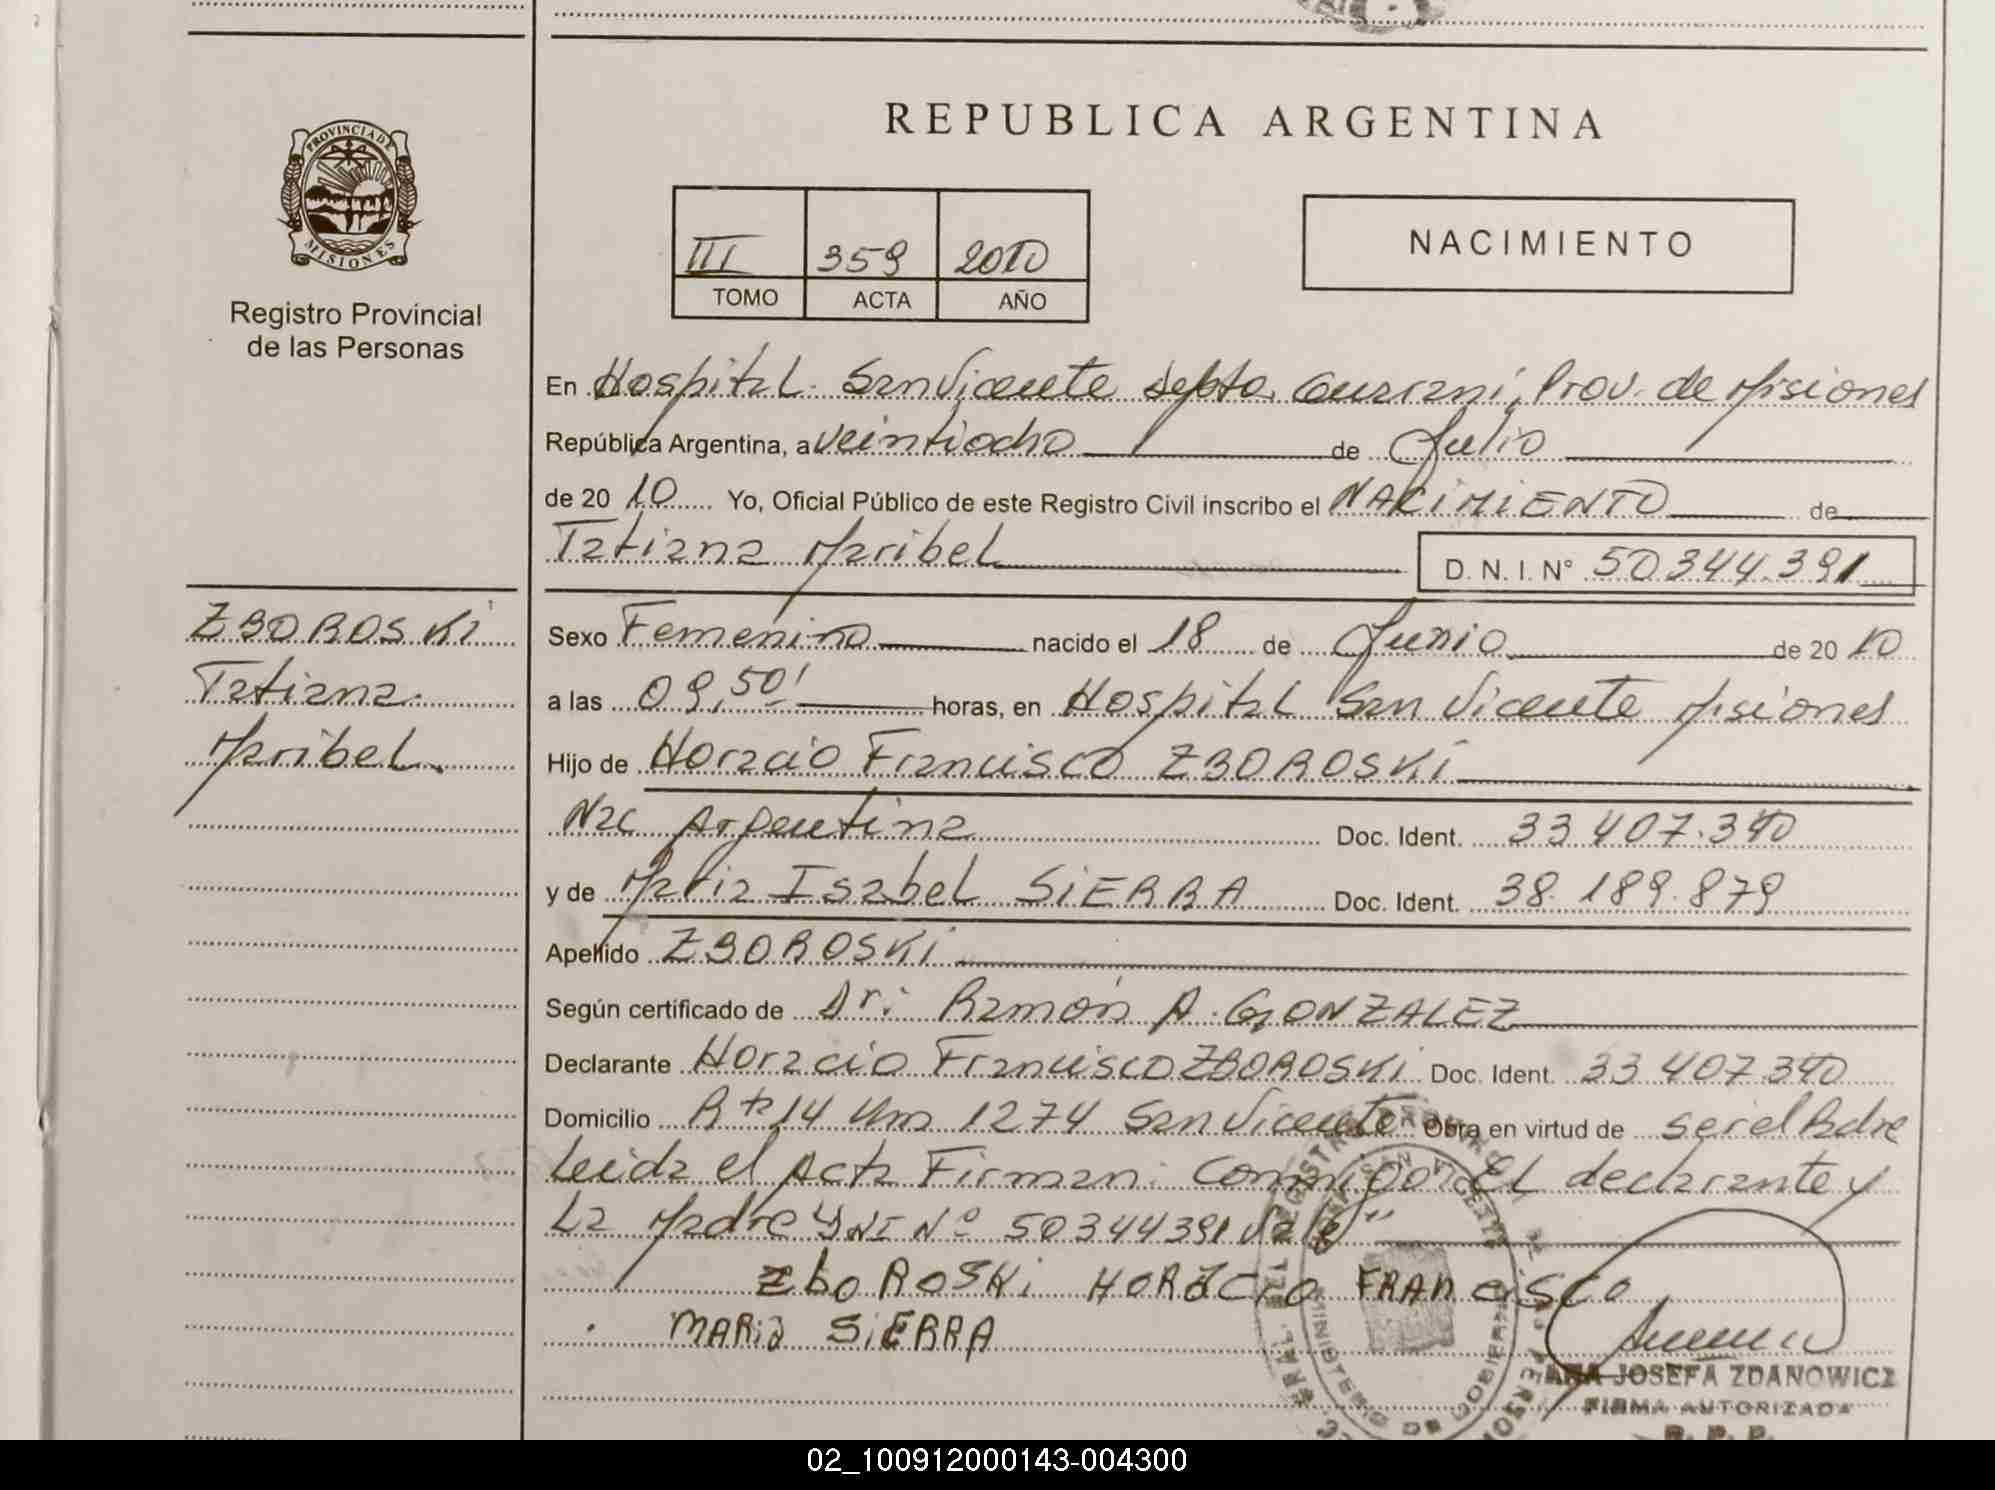 REPUBLICA ARGENTINA
PROVINCIA DE
MISIONES
Registro Provincial
de las Personas
III 359 2010
TOMO ACTA AÑO
NACIMIENTO
En Hospital San Vicente depto. Guarani, Prov. de Misiones
República Argentina, a veintiocho de Julio
de 2010 Yo, Oficial Público de este Registro Civil inscribo el NACIMIENTO de
Tatiana Maribel D. N. I. N° 50344.391
ZBOROSKi
Tatiana
Maribel
Sexo Femenino nacido el 18 de Junio de 2010
a las 09,50' horas, en Hospital San Vicente Misiones
Hijo de Horacio Francisco ZBOROSKi
Nac Argentina Doc. Ident. 33.407.340
y de Maria Isabel SiERRA Doc. Ident. 38.189.879
Apellido ZBOROSKi
Según certificado de Dr: Ramón A. GONZALEZ
Declarante Horacio Francisco ZBOROSKi Doc. Ident. 33 407.340
Domicilio Rta 14 Km 1274 San Vicente Obra en virtud de ser el Padre
Leida el Acta Firman: Conmigo: El declarante y
La Madre "DNI N° 50344391 Vale"
ZboROSKi HORACIO FRANCISCO
MARiA SiERRA
ANA JOSEFA ZDANOWICZ
FIRMA AUTORIZADA
R. P. P.
02_100912000143-004300